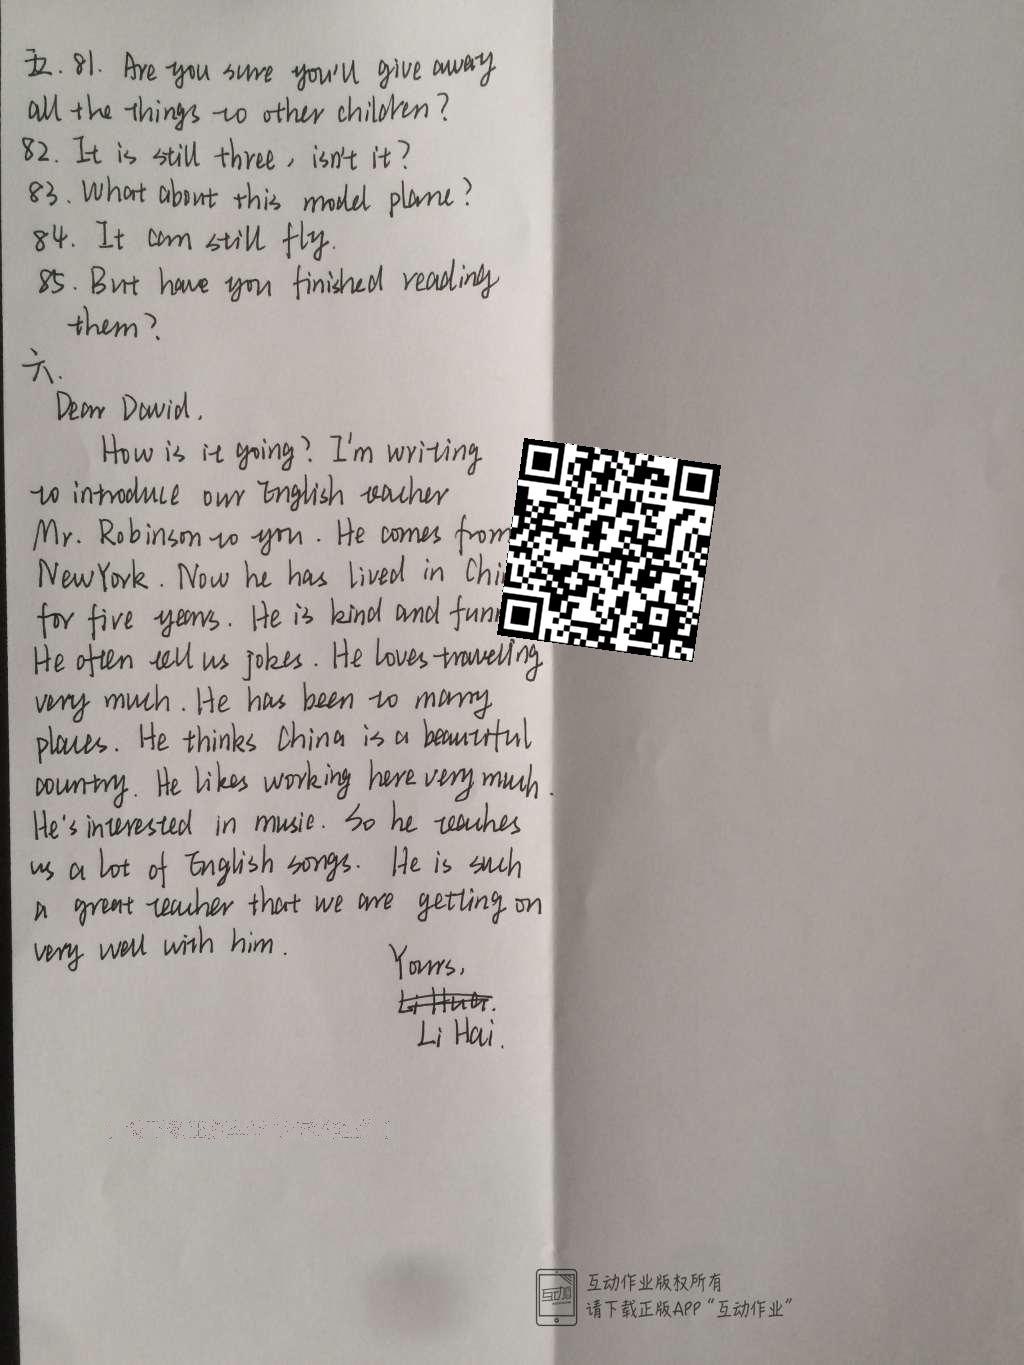 五. 81. Are you sure you'll give away
all the things to other children?
82. It is still three, isn't it?
83. What about this model plane?
84. It can still fly.
85. But have you finished reading
them?
六.
Dear David.
How is it going? I'm writing
to introduce our English teacher
Mr. Robinson to you. He comes from
New York. Now he has lived in Chi
for five years. He is kind and fun
He often tell us jokes. He loves traveling
very much. He has been to many
places. He thinks China is a beautiful
country. He likes working here very much.
He's interested in music. So he teaches
us a lot of English songs. He is such
a great teacher that we are getting on
very well with him.
Yours,
Li Hua.
Li Hai.
互动作业版权所有
请下载正版APP“互动作业”